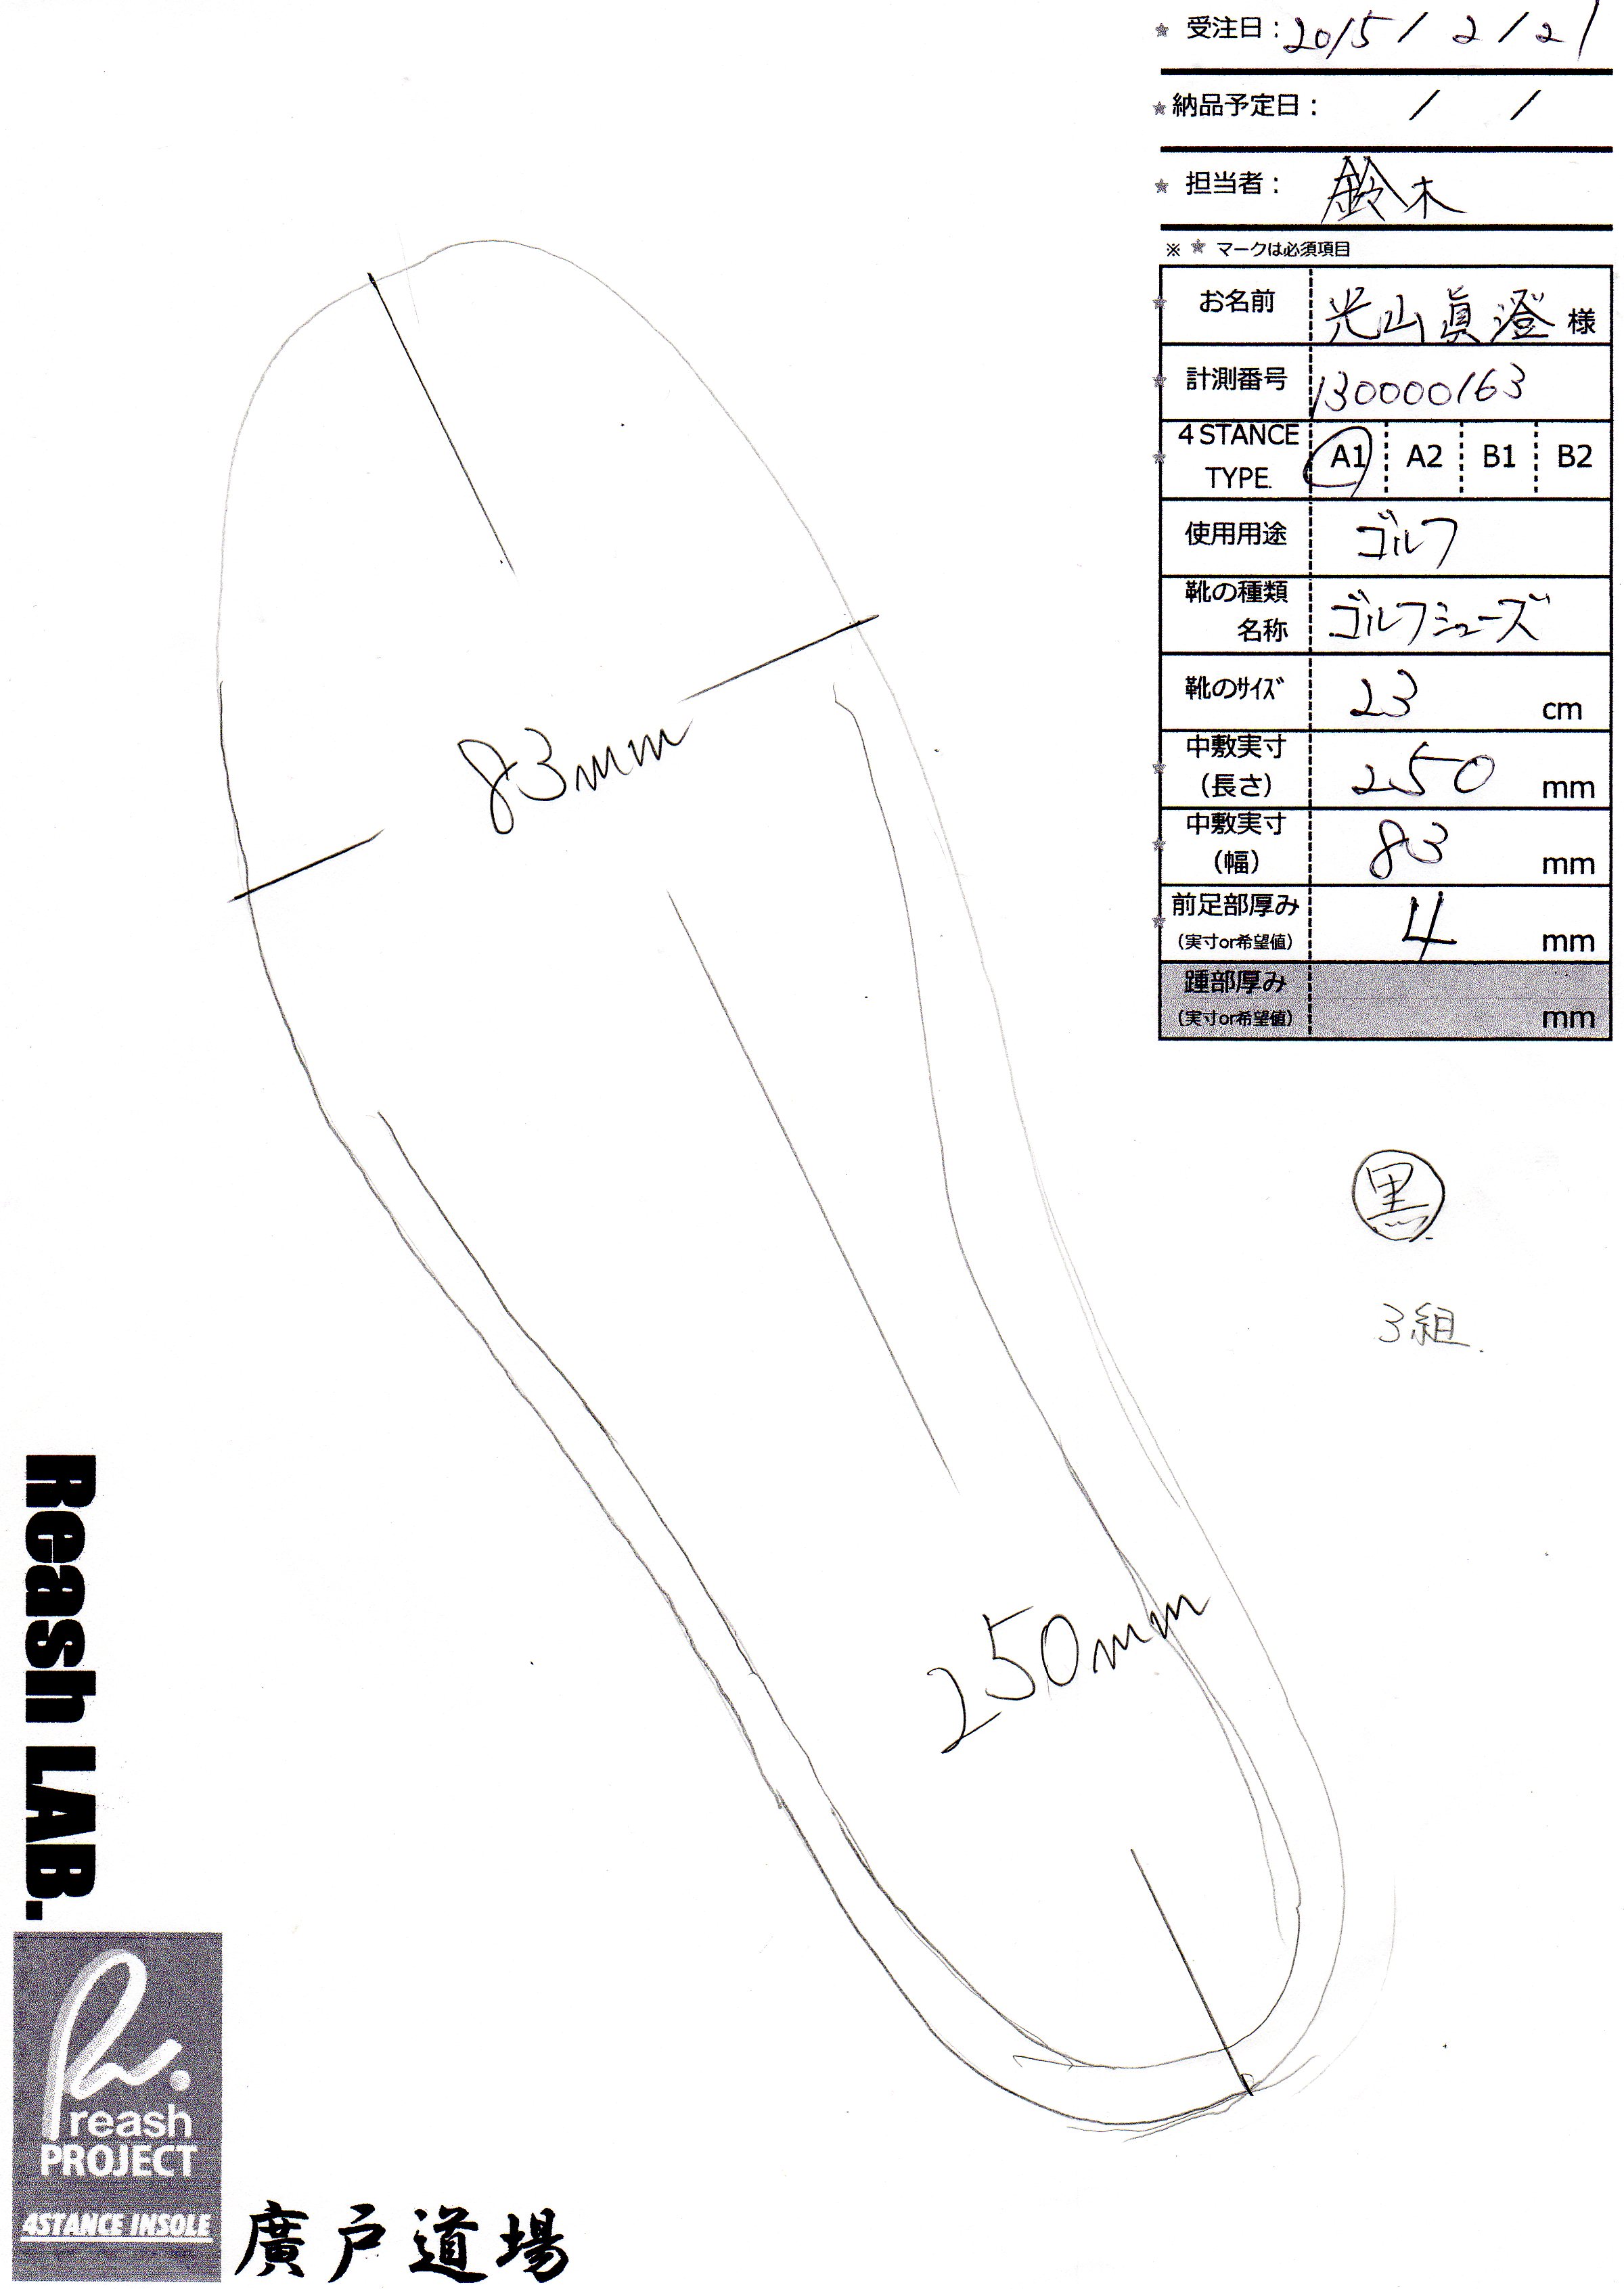 ★ 受注日：2015 / 2 / 21
★ 納品予定日： / /
★ 担当者： 鈴木
※ ★ マークは必須項目
★ お名前 光山眞澄 様
★ 計測番号 130000163
★ 4 STANCE TYPE. A1 A2 B1 B2
使用用途 ゴルフ
靴の種類 ゴルフシューズ
名称
靴のサイズ 23 cm
★ 中敷実寸 250 mm
（長さ）
★ 中敷実寸 83 mm
（幅）
★ 前足部厚み 4 mm
（実寸or希望値）
踵部厚み
（実寸or希望値） mm
83mm
黒
3組.
250mm
Reash LAB.
reash
PROJECT
4STANCE INSOLE
廣戸道場